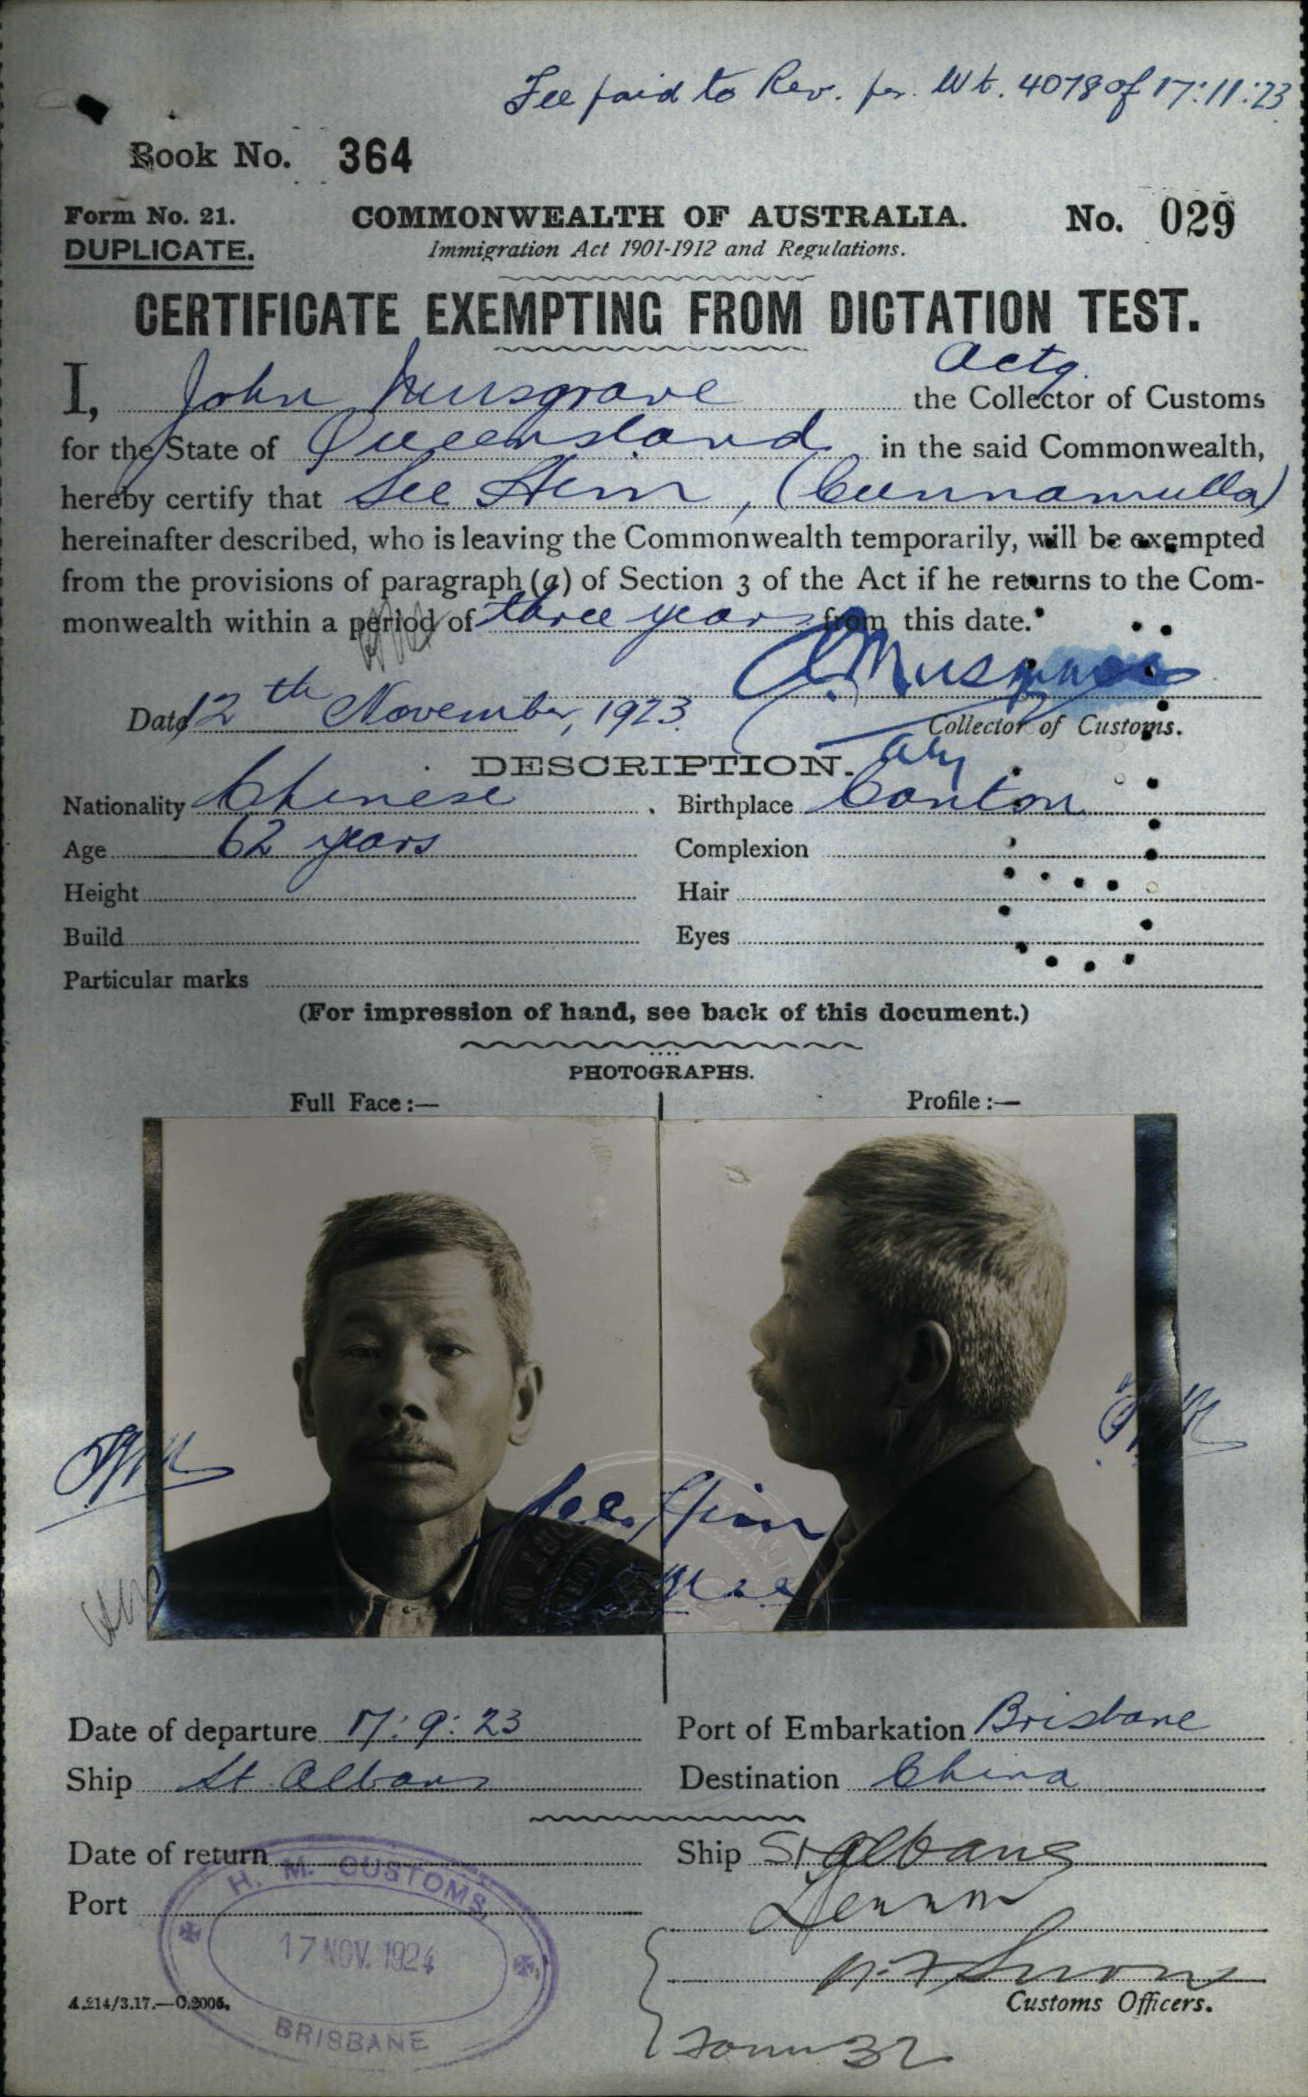 Fee paid to Rev. per Wt. 4078 of 17:11:23
Book No. 364
Form No. 21.
COMMONWEALTH OF AUSTRALIA.
No. 029
DUPLICATE.
Immigration Act 1901-1912 and Regulations.
CERTIFICATE EXEMPTING FROM DICTATION TEST.
Actg.
I, John Musgrave the Collector of Customs
for the State of Queensland in the said Commonwealth,
hereby certify that See Him, (Cunnamulla)
hereinafter described, who is leaving the Commonwealth temporarily, will be exempted
from the provisions of paragraph (a) of Section 3 of the Act if he returns to the Com-
monwealth within a period of three years from this date.
Musgrave
Date 12th November, 1923
Collector of Customs.
DESCRIPTION.
Nationality Chinese Birthplace Canton
Age 62 years Complexion
Height Hair
Build Eyes
Particular marks
(For impression of hand, see back of this document.)
PHOTOGRAPHS.
Full Face:— Profile:—
See Him
Date of departure 17:9:23 Port of Embarkation Brisbane
Ship St Albans Destination China
Date of return Ship St Albans
Port
H. M. CUSTOMS,
17 NOV. 1924
BRISBANE
Customs Officers.
A.214/3.17.—C.2005.
Form 32